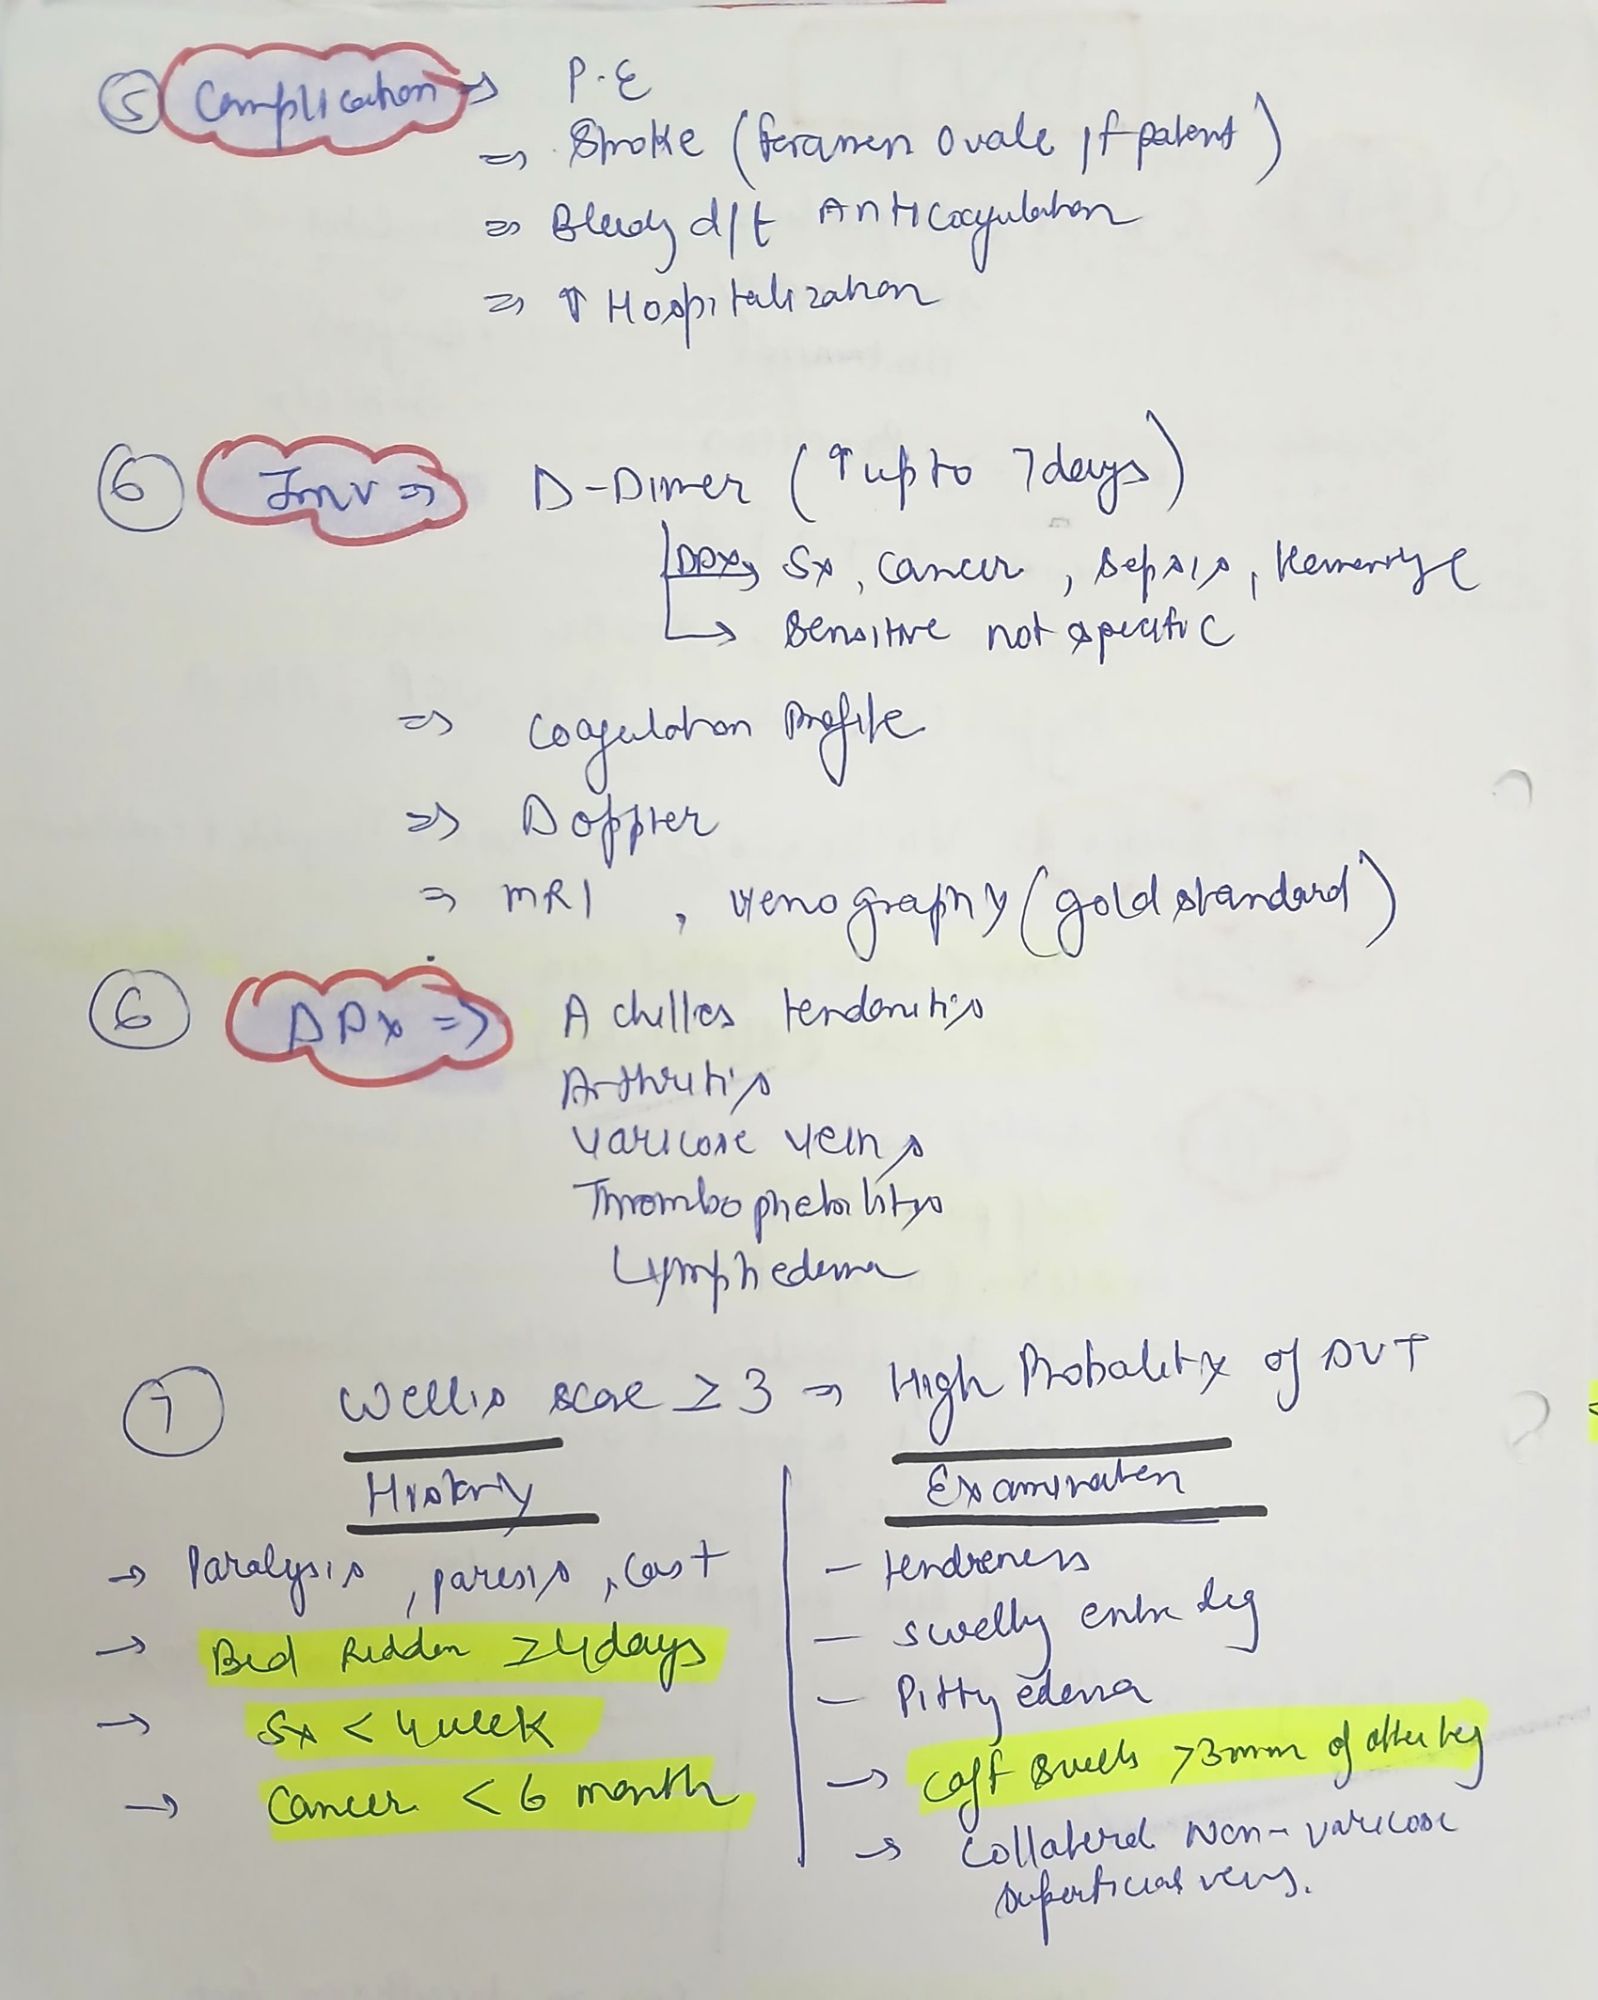 ⑤ Complication → P.E
⇒ Stroke (foramen ovale, if patent)
⇒ Bleedy d/t Anticoagulation
⇒ ↑ Hospitalization
⑥ Inv ⇒ D-Dimer (↑ upto 7days)
DDx → Sx, cancer, sepsis, Hemorrhge
→ Sensitive not specific
⇒ Coagulation Profile
⇒ Doppler
⇒ MRI, venography (gold standard)
⑥ DDx ⇒ Achilles tendonitis
Arthritis
Varicose veins
Thrombophebilitis
Lymphedema
⑦ Wellis score ≥ 3 ⇒ High Probality of DVT
History
→ Paralysis, paresis, cast
→ Bed Ridden ≥4days
→ Sx < 4week
→ Cancer < 6 month
Examination
– tendreness
– swelly entire leg
– Pitty edema
→ Calf swells >3mm of other leg
→ Collateral Non-varicose
superficial veins.